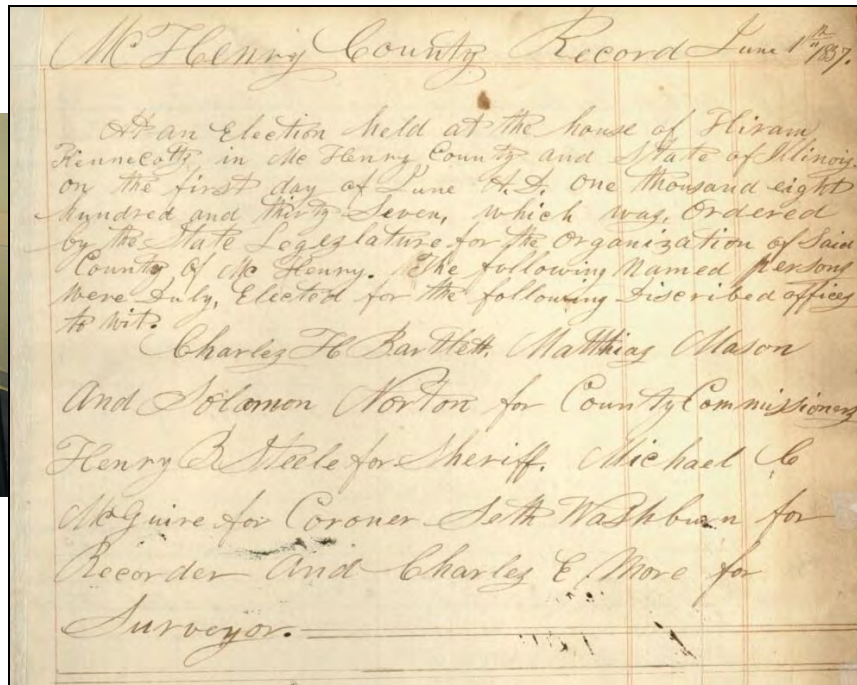 McHenry County Record June 1th 1837.
At an Election held at the house of Hiram
Kennecotty, in McHenry County and State of Illinois.
on the first day of June A.D. one thousand eight
hundred and thirty Seven, which was, Ordered
by the State Legezlature for the Organization of Said
County of McHenry. The following Named Persons
Were Duly, Elected for the following Discribed offices
to Wit.
Charles H Bartlett. Matthias Mason
And Solomon Norton for County Commissioners
Henry B Steele for Sheriff. Michael C
McGuire for Coroner Seth Washburn for
Recorder And Charles E More for
Surveyor.